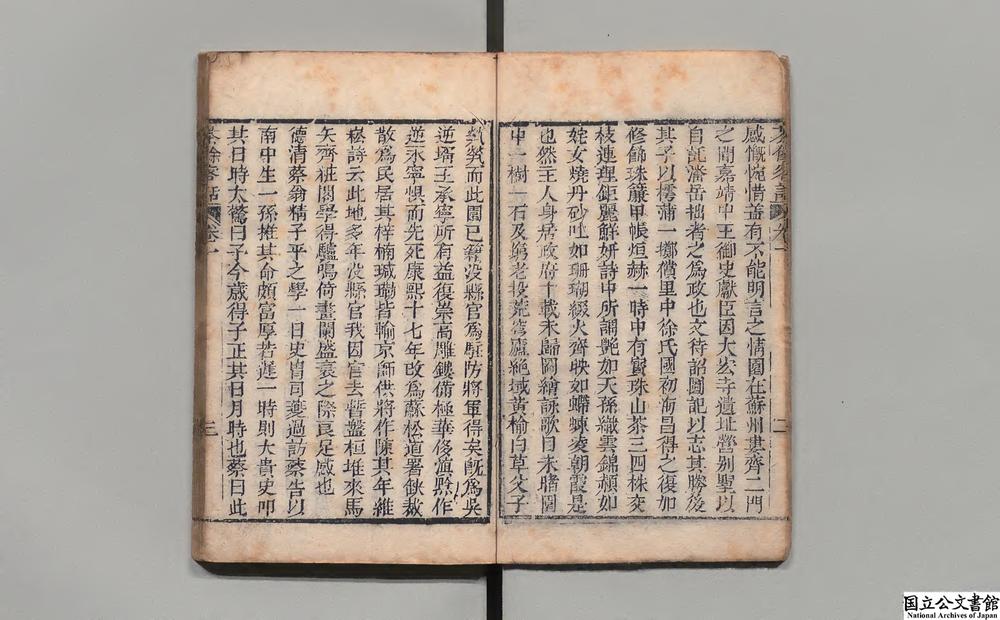 感慨惋惜蓋有不能明言之情園在蘇州婁齊二門
之間嘉靖中王御史獻臣因大宏寺遺址營别墅以
自託潘岳拙者之爲政也文待詔圖記以志其勝後
其子以樗蒲一擲償里中徐氏國初海昌得之復加
修飾珠簾甲帳烜赫一時中有寳珠山茶三四株交
枝連理鉅麗鮮妍詩中所謂艷如天孫織雲錦頳如
姹女燒丹砂吐如珊瑚綴火齊映如螮蝀凌朝霞是
也然主人身居政府十載未歸圖繪詠歌目未睹園
中一樹一石及窮老投荒穹廬絶域黄榆白草父子
煢煢而此園已籍没縣官爲駐防將軍得矣旣爲吳
逆壻王承寧所有益復崇高雕鏤備極華侈滇黔作
逆永寧懼而先死康熙十七年改爲蘇松道署缺裁
散爲民居其梓楠瑊玏皆輸京師供將作陳其年維
崧詩云此地多年没縣官我因官去暫盤桓堆來馬
矢齊粧閣學得驢鳴倚畫闌盛衰之際良足感也
德清蔡翁精子平之學一日史胄司夔過訪蔡告以
南中生一孫推其命頗富厚若遲一時則大貴史叩
其日時大驚曰子今歲得子正其日月時也蔡曰此
卷一
二
卷一
三
国立公文書館
National Archives of Japan